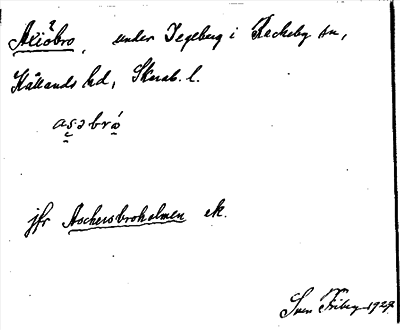 Axiöbro, under Tegeberg i Rackeby sn,
Kållands hd, Skarab. l.
asəbró
jfr Aschersbroholmen ek.
Sven Friberg 1927